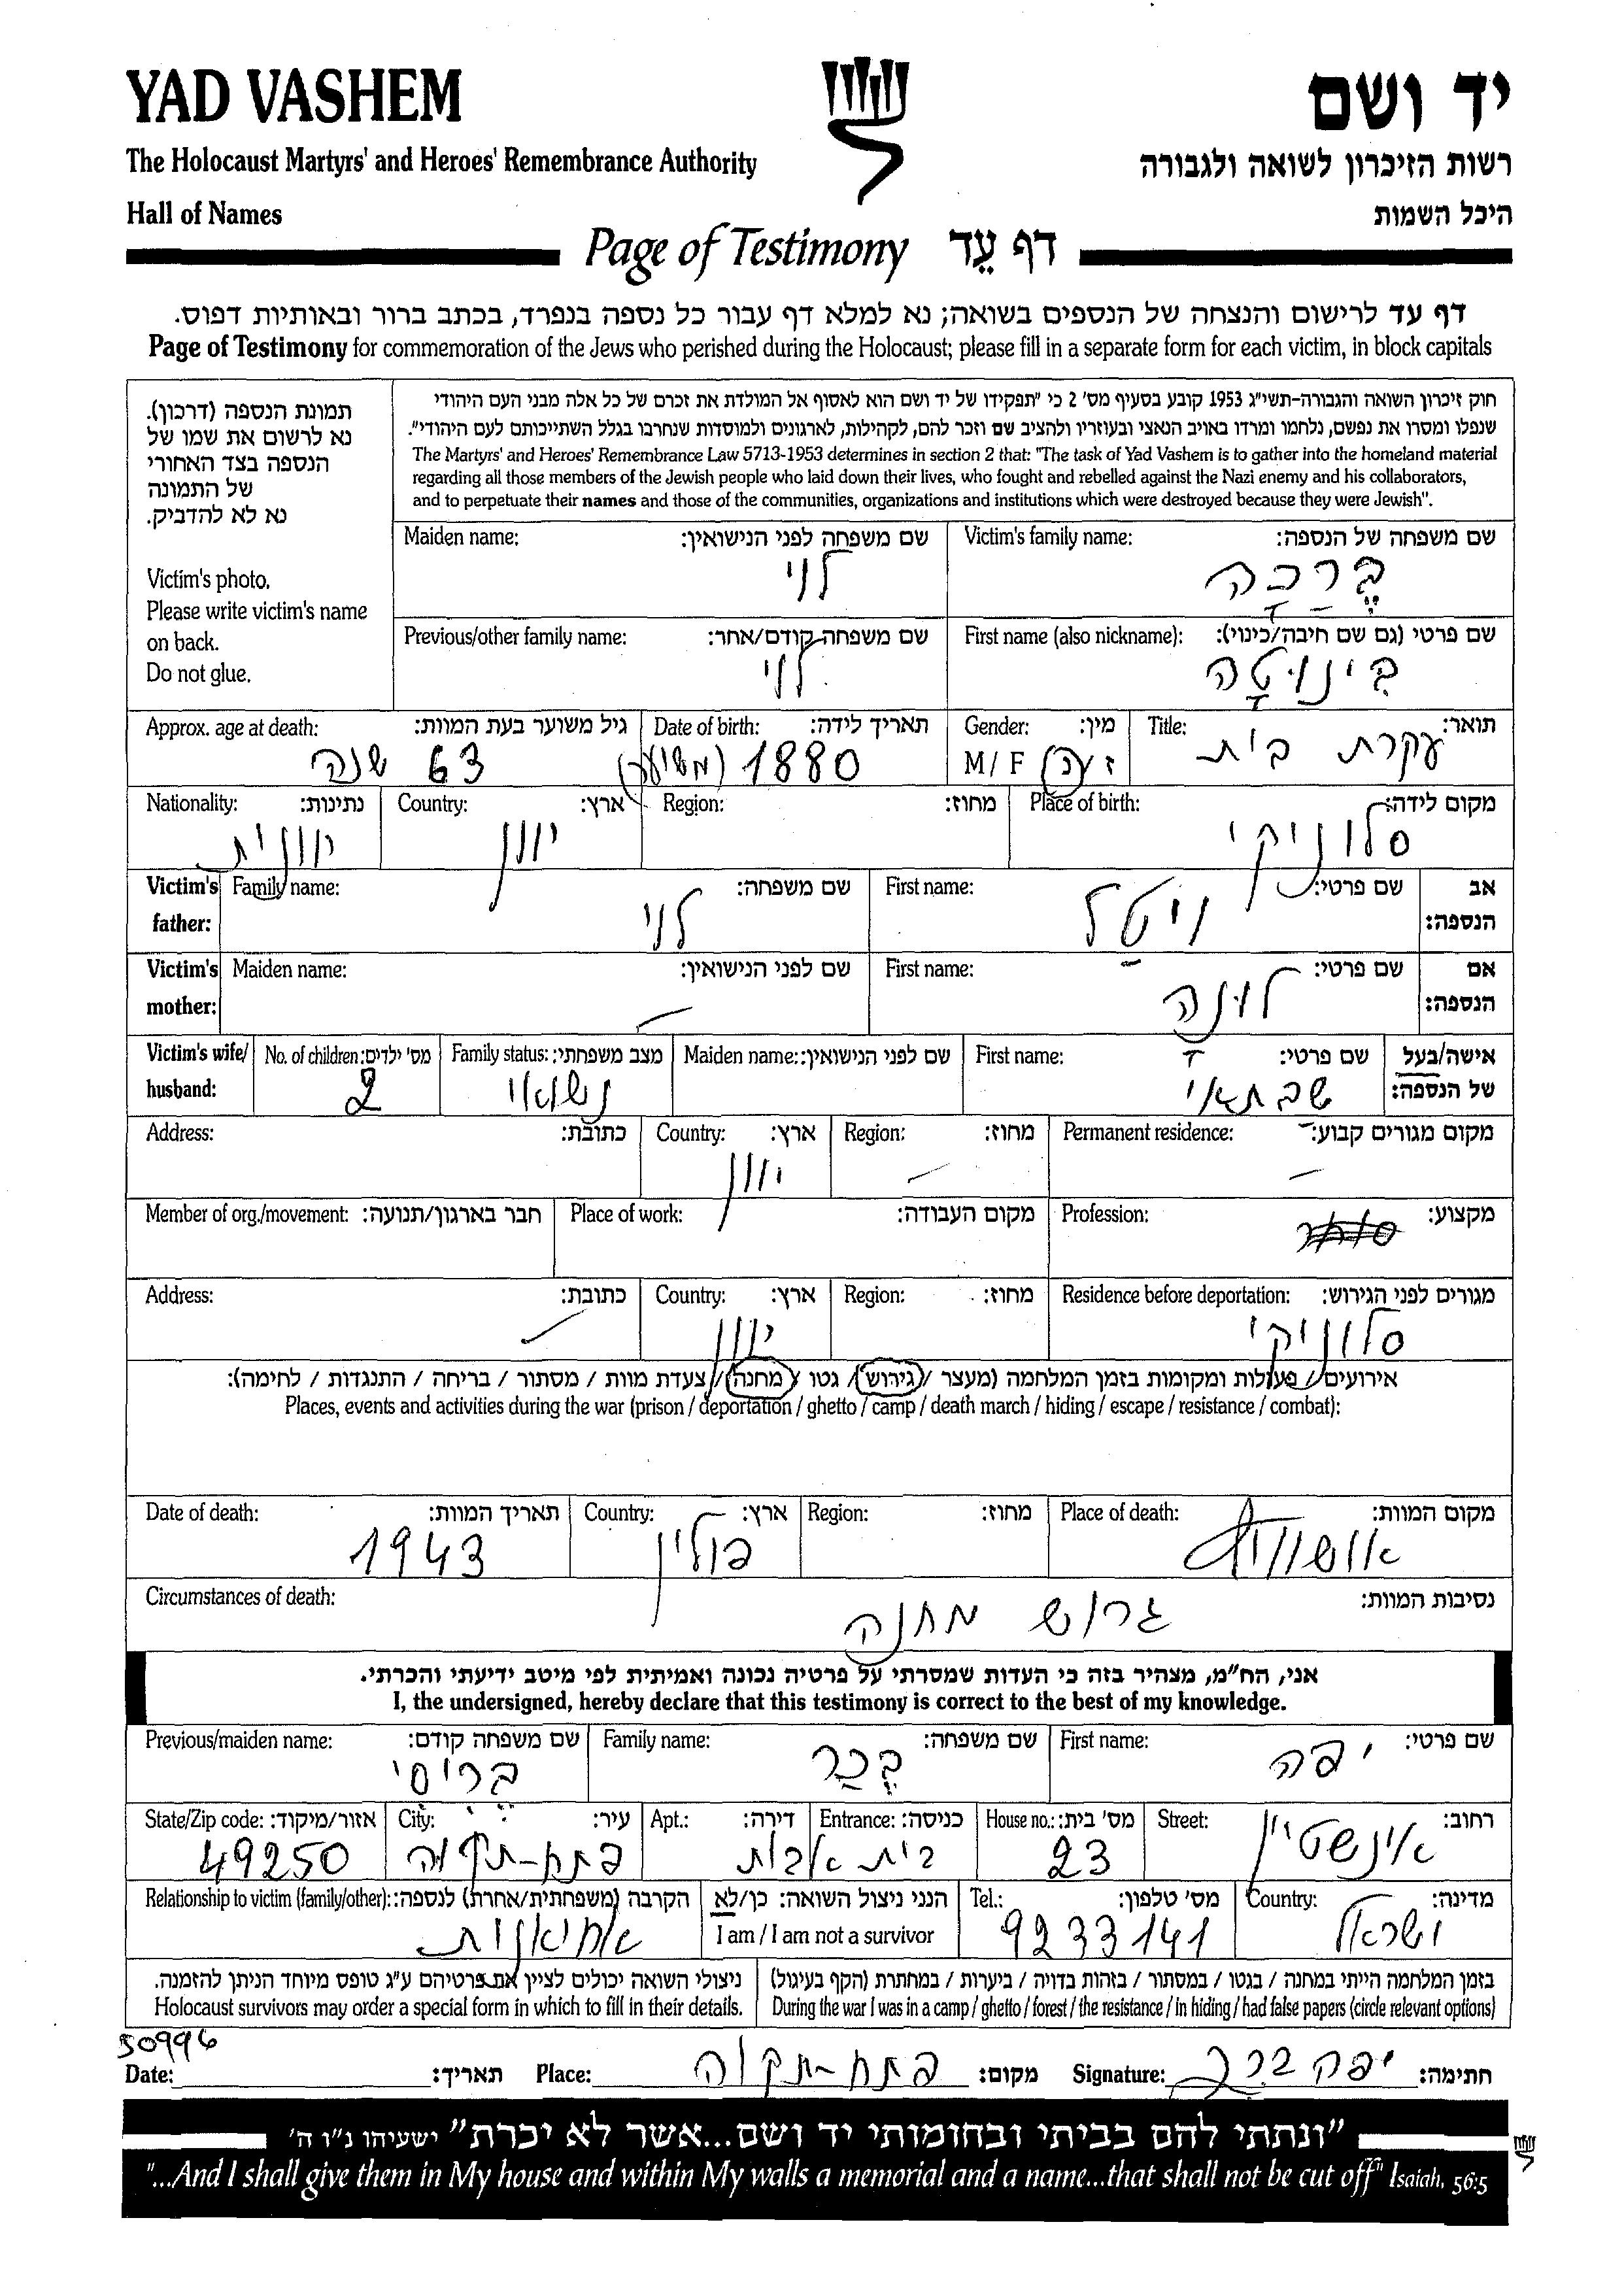 YAD VASHEM יד ושם
The Holocaust Martyrs' and Heroes' Remembrance Authority רשות הזיכרון לשואה ולגבורה
Hall of Names היכל השמות
Page of Testimony דף עֵד
דף עד לרישום והנצחה של הנספים בשואה; נא למלא דף עבור כל נספה בנפרד, בכתב ברור ובאותיות דפוס.
Page of Testimony for commemoration of the Jews who perished during the Holocaust; please fill in a separate form for each victim, in block capitals
תמונת הנספה (דרכון).
נא לרשום את שמו של
הנספה בצד האחורי
של התמונה
נא לא להדביק.
Victim's photo.
Please write victim's name
on back.
Do not glue.
חוק זיכרון השואה והגבורה-תשי"ג 1953 קובע בסעיף מס' 2 כי "תפקידו של יד ושם הוא לאסוף אל המולדת את זכרם של כל אלה מבני העם היהודי
שנפלו ומסרו את נפשם, נלחמו ומרדו באויב הנאצי ובעוזריו ולהציב שם וזכר להם, לקהילות, לארגונים ולמוסדות שנחרבו בגלל השתייכותם לעם היהודי".
The Martyrs' and Heroes' Remembrance Law 5713-1953 determines in section 2 that: "The task of Yad Vashem is to gather into the homeland material
regarding all those members of the Jewish people who laid down their lives, who fought and rebelled against the Nazi enemy and his collaborators,
and to perpetuate their names and those of the communities, organizations and institutions which were destroyed because they were Jewish".
Victim's family name: שם משפחה של הנספה: Maiden name: שם משפחה לפני הנישואין:
בֶּרַכָה לוי
First name (also nickname): שם פרטי (גם שם חיבה/כינוי): Previous/other family name: שם משפחה קודם/אחר:
בִּינוּטָה לוי
Title: תואר: Gender: מין: Date of birth: תאריך לידה: Approx. age at death: גיל משוער בעת המוות:
עקרת בית M / F ז / נה 1880 (משוער) 63 שנה
Place of birth: מקום לידה: Region: מחוז: Country: ארץ: Nationality: נתינות:
סלוניקי יוון יוונית
Victim's father: אב הנספה: First name: שם פרטי: Family name: שם משפחה:
ויטַל לוי
Victim's mother: אם הנספה: First name: שם פרטי: Maiden name: שם לפני הנישואין:
לוּנָה —
Victim's wife/ husband: אישה/בעל של הנספה: First name: שם פרטי: Maiden name: שם לפני הנישואין: Family status: מצב משפחתי: No. of children: מס' ילדים:
שבתאי נשואי 2
Permanent residence: מקום מגורים קבוע: Region: מחוז: Country: ארץ: Address: כתובת:
— — יוון
Profession: מקצוע: Place of work: מקום העבודה: Member of org./movement: חבר בארגון/תנועה:
Residence before deportation: מגורים לפני הגירוש: Region: מחוז: Country: ארץ: Address: כתובת:
סלוניקי יוון —
אירועים / פעולות ומקומות בזמן המלחמה (מעצר / גירוש / גטו / מחנה / צעדת מוות / מסתור / בריחה / התנגדות / לחימה):
Places, events and activities during the war (prison / deportation / ghetto / camp / death march / hiding / escape / resistance / combat):
Place of death: מקום המוות: Region: מחוז: Country: ארץ: Date of death: תאריך המוות:
אושוויץ פולין 1943
Circumstances of death: נסיבות המוות:
גרוש מחנה
אני, הח"מ, מצהיר בזה כי העדות שמסרתי על פרטיה נכונה ואמיתית לפי מיטב ידיעתי והכרתי.
I, the undersigned, hereby declare that this testimony is correct to the best of my knowledge.
First name: שם פרטי: Family name: שם משפחה: Previous/maiden name: שם משפחה קודם:
יפה בֶּכַר
Street: רחוב: House no.: מס' בית: Entrance: כניסה: Apt.: דירה: City: עיר: State/Zip code: אזור/מיקוד:
אינשטיין 23 בית אבות פתח-תקוה 49250
Country: מדינה: Tel.: מס' טלפון: הנני ניצול השואה: כן/לא Relationship to victim (family/other): הקרבה (משפחתית/אחרת) לנספה:
ישראל 9233141 I am / I am not a survivor אחיאנית
בזמן המלחמה הייתי במחנה / בגטו / במסתור / בזהות בדויה / ביערות / במחתרת (הקף בעיגול) ניצולי השואה יכולים לציין את פרטיהם ע"ג טופס מיוחד הניתן להזמנה.
During the war I was in a camp / ghetto / forest / the resistance / in hiding / had false papers (circle relevant options) Holocaust survivors may order a special form in which to fill in their details.
50996
Date: תאריך: Place: פתח-תקוה מקום: Signature: יפה בכר חתימה:
"ונתתי להם בביתי ובחומותי יד ושם...אשר לא יכרת" ישעיהו נ"ו ה'
"...And I shall give them in My house and within My walls a memorial and a name...that shall not be cut off" Isaiah, 56:5